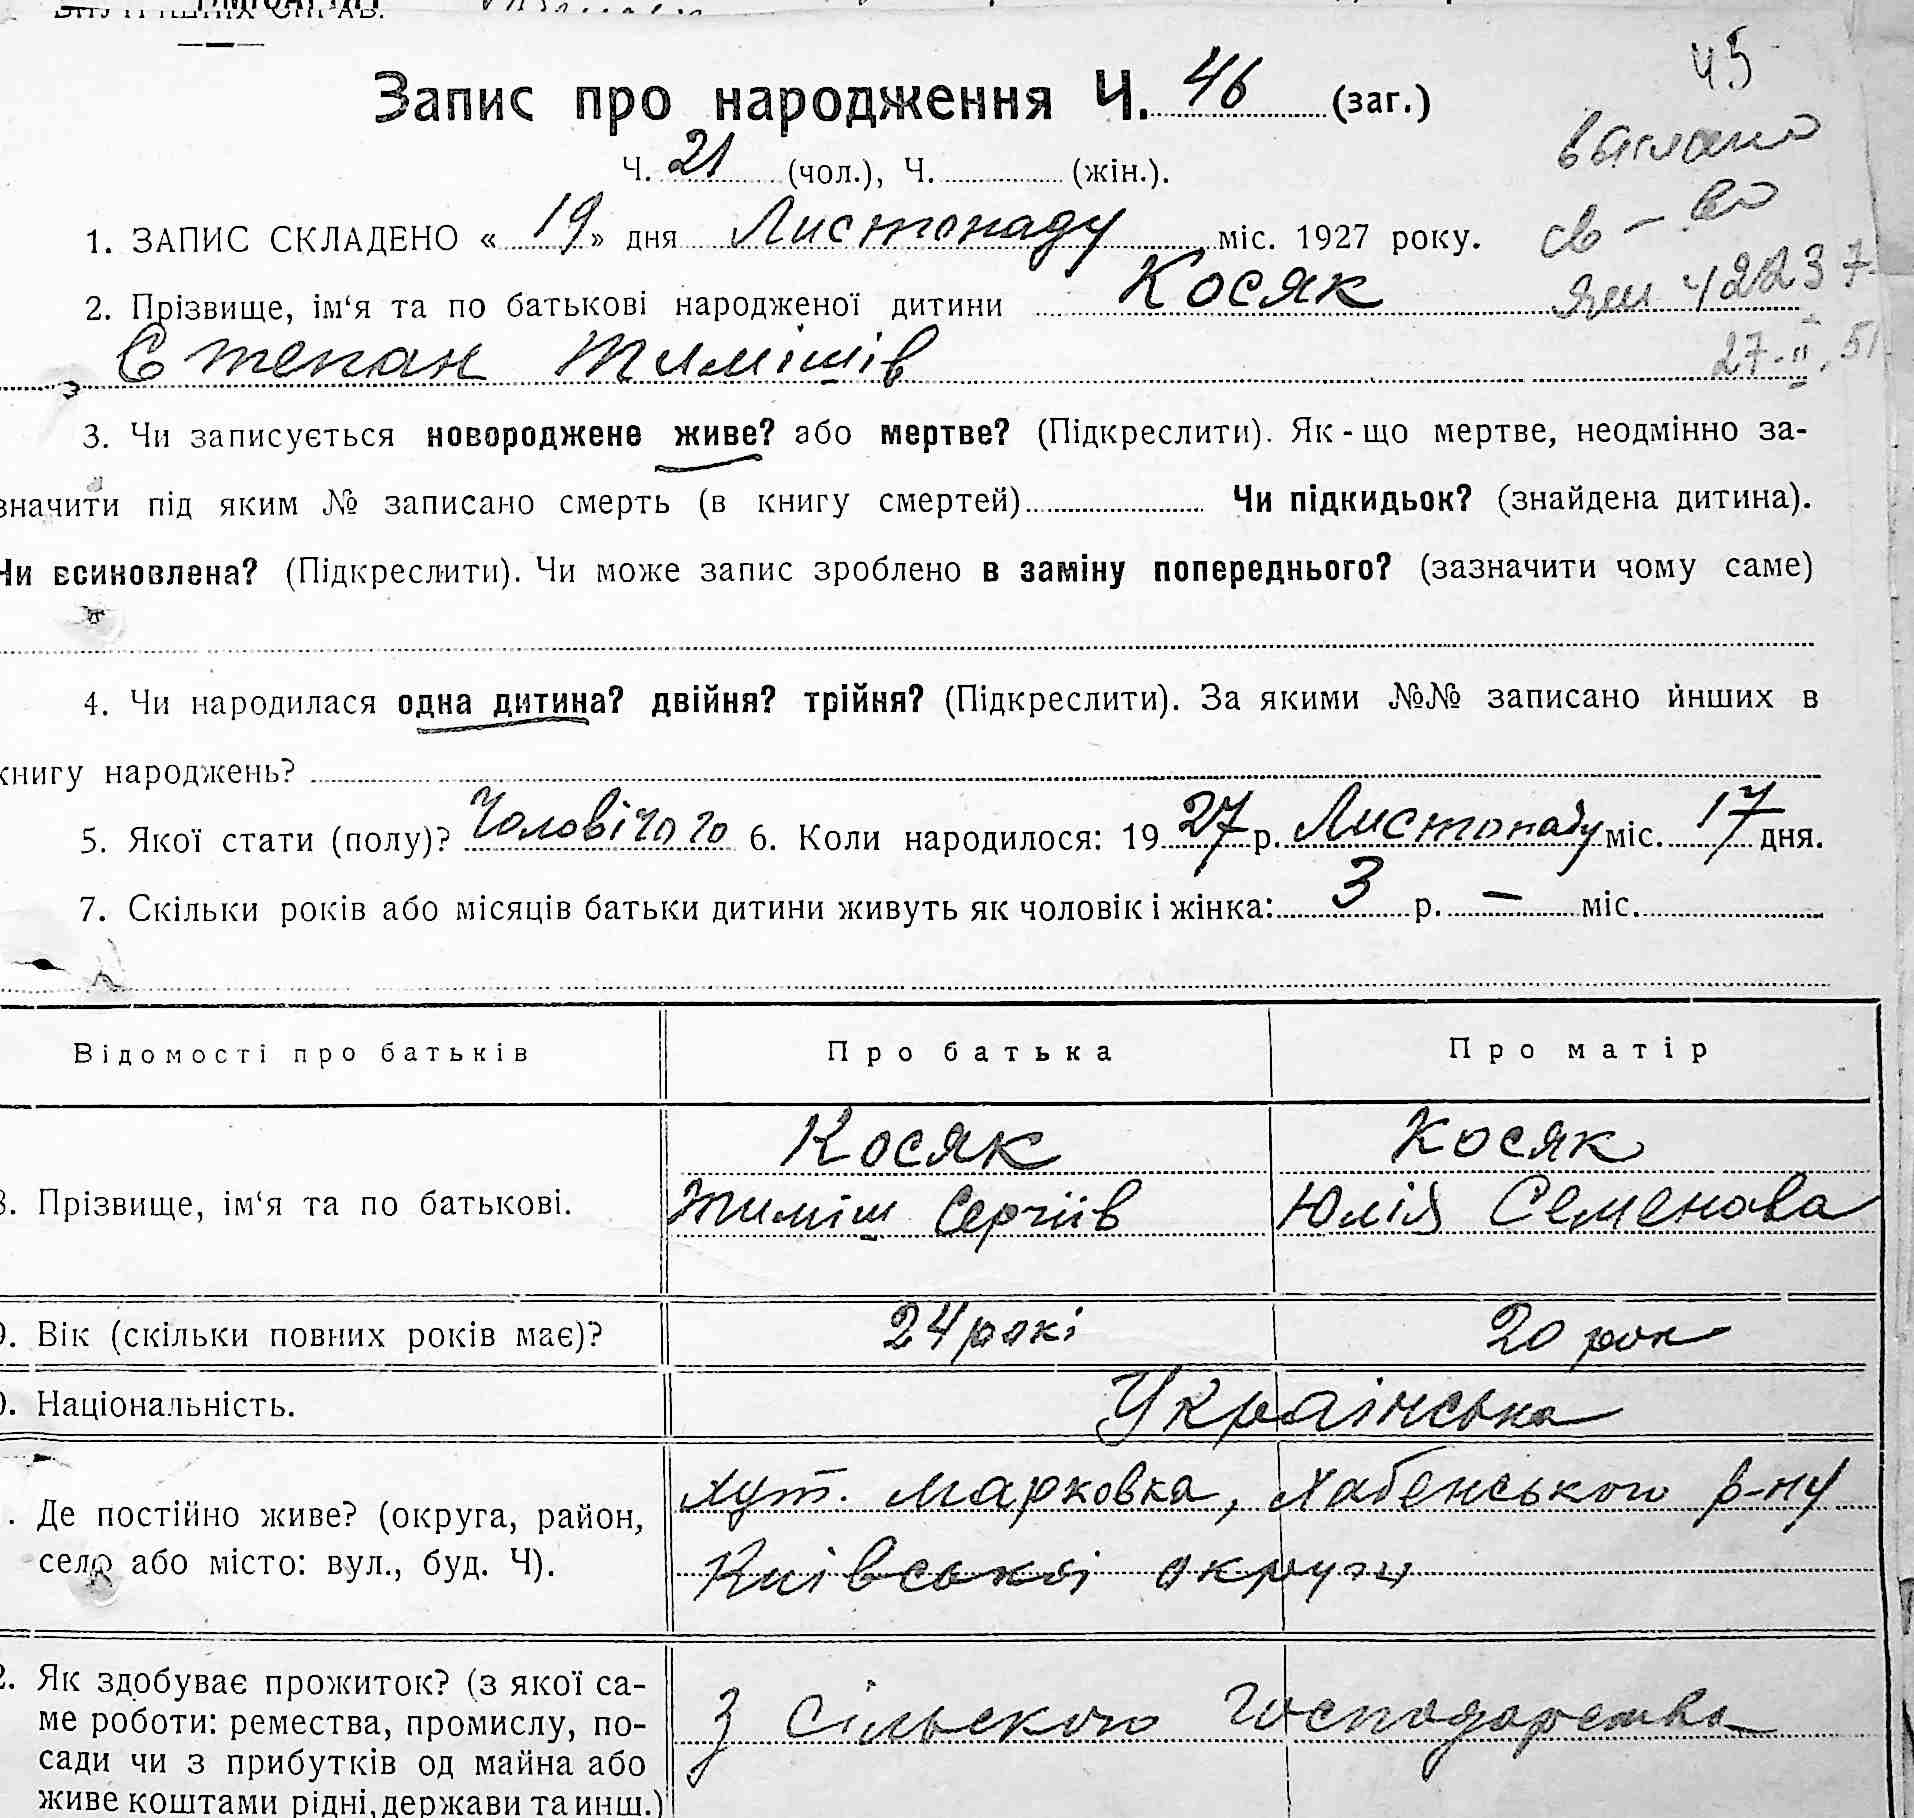 ВНУТРІШНІХ СПРАВ.
45
Запис про народження Ч. 46 (заг.)
Ч. 21 (чол.), Ч. (жін.).
1. ЗАПИС СКЛАДЕНО « 19 » дня Листопаду міс. 1927 року.
св-во
2. Прізвище, ім‘я та по батькові народженої дитини Косяк
42237
Степан Тимішів
27-II.51
3. Чи записується новороджене живе? або мертве? (Підкреслити). Як-що мертве, неодмінно за-
значити під яким № записано смерть (в книгу смертей) Чи підкидьок? (знайдена дитина).
Чи всиновлена? (Підкреслити). Чи може запис зроблено в заміну попереднього? (зазначити чому саме)
4. Чи народилася одна дитина? двійня? трійня? (Підкреслити). За якими №№ записано йнших в
книгу народжень?
5. Якої стати (полу)? Чоловічого 6. Коли народилося: 19 27 р. Листопаду міс. 17 дня.
7. Скільки років або місяців батьки дитини живуть як чоловік і жінка: 3 р. — міс.
Відомості про батьків Про батька Про матір
Косяк Косяк
8. Прізвище, ім‘я та по батькові. Тиміш Сергіів Юлія Семенова
9. Вік (скільки повних років має)? 24 рокі 20 рок
0. Національність. Українська
. Де постійно живе? (округа, район, село або місто: вул., буд. Ч).
хут. Марковка, Хабенського р-ну
Київськоі округи
2. Як здобуває прожиток? (з якої са-
ме роботи: ремества, промислу, по-
сади чи з прибутків од майна або
живе коштами рідні, держави та инш.)
З сільского господарства